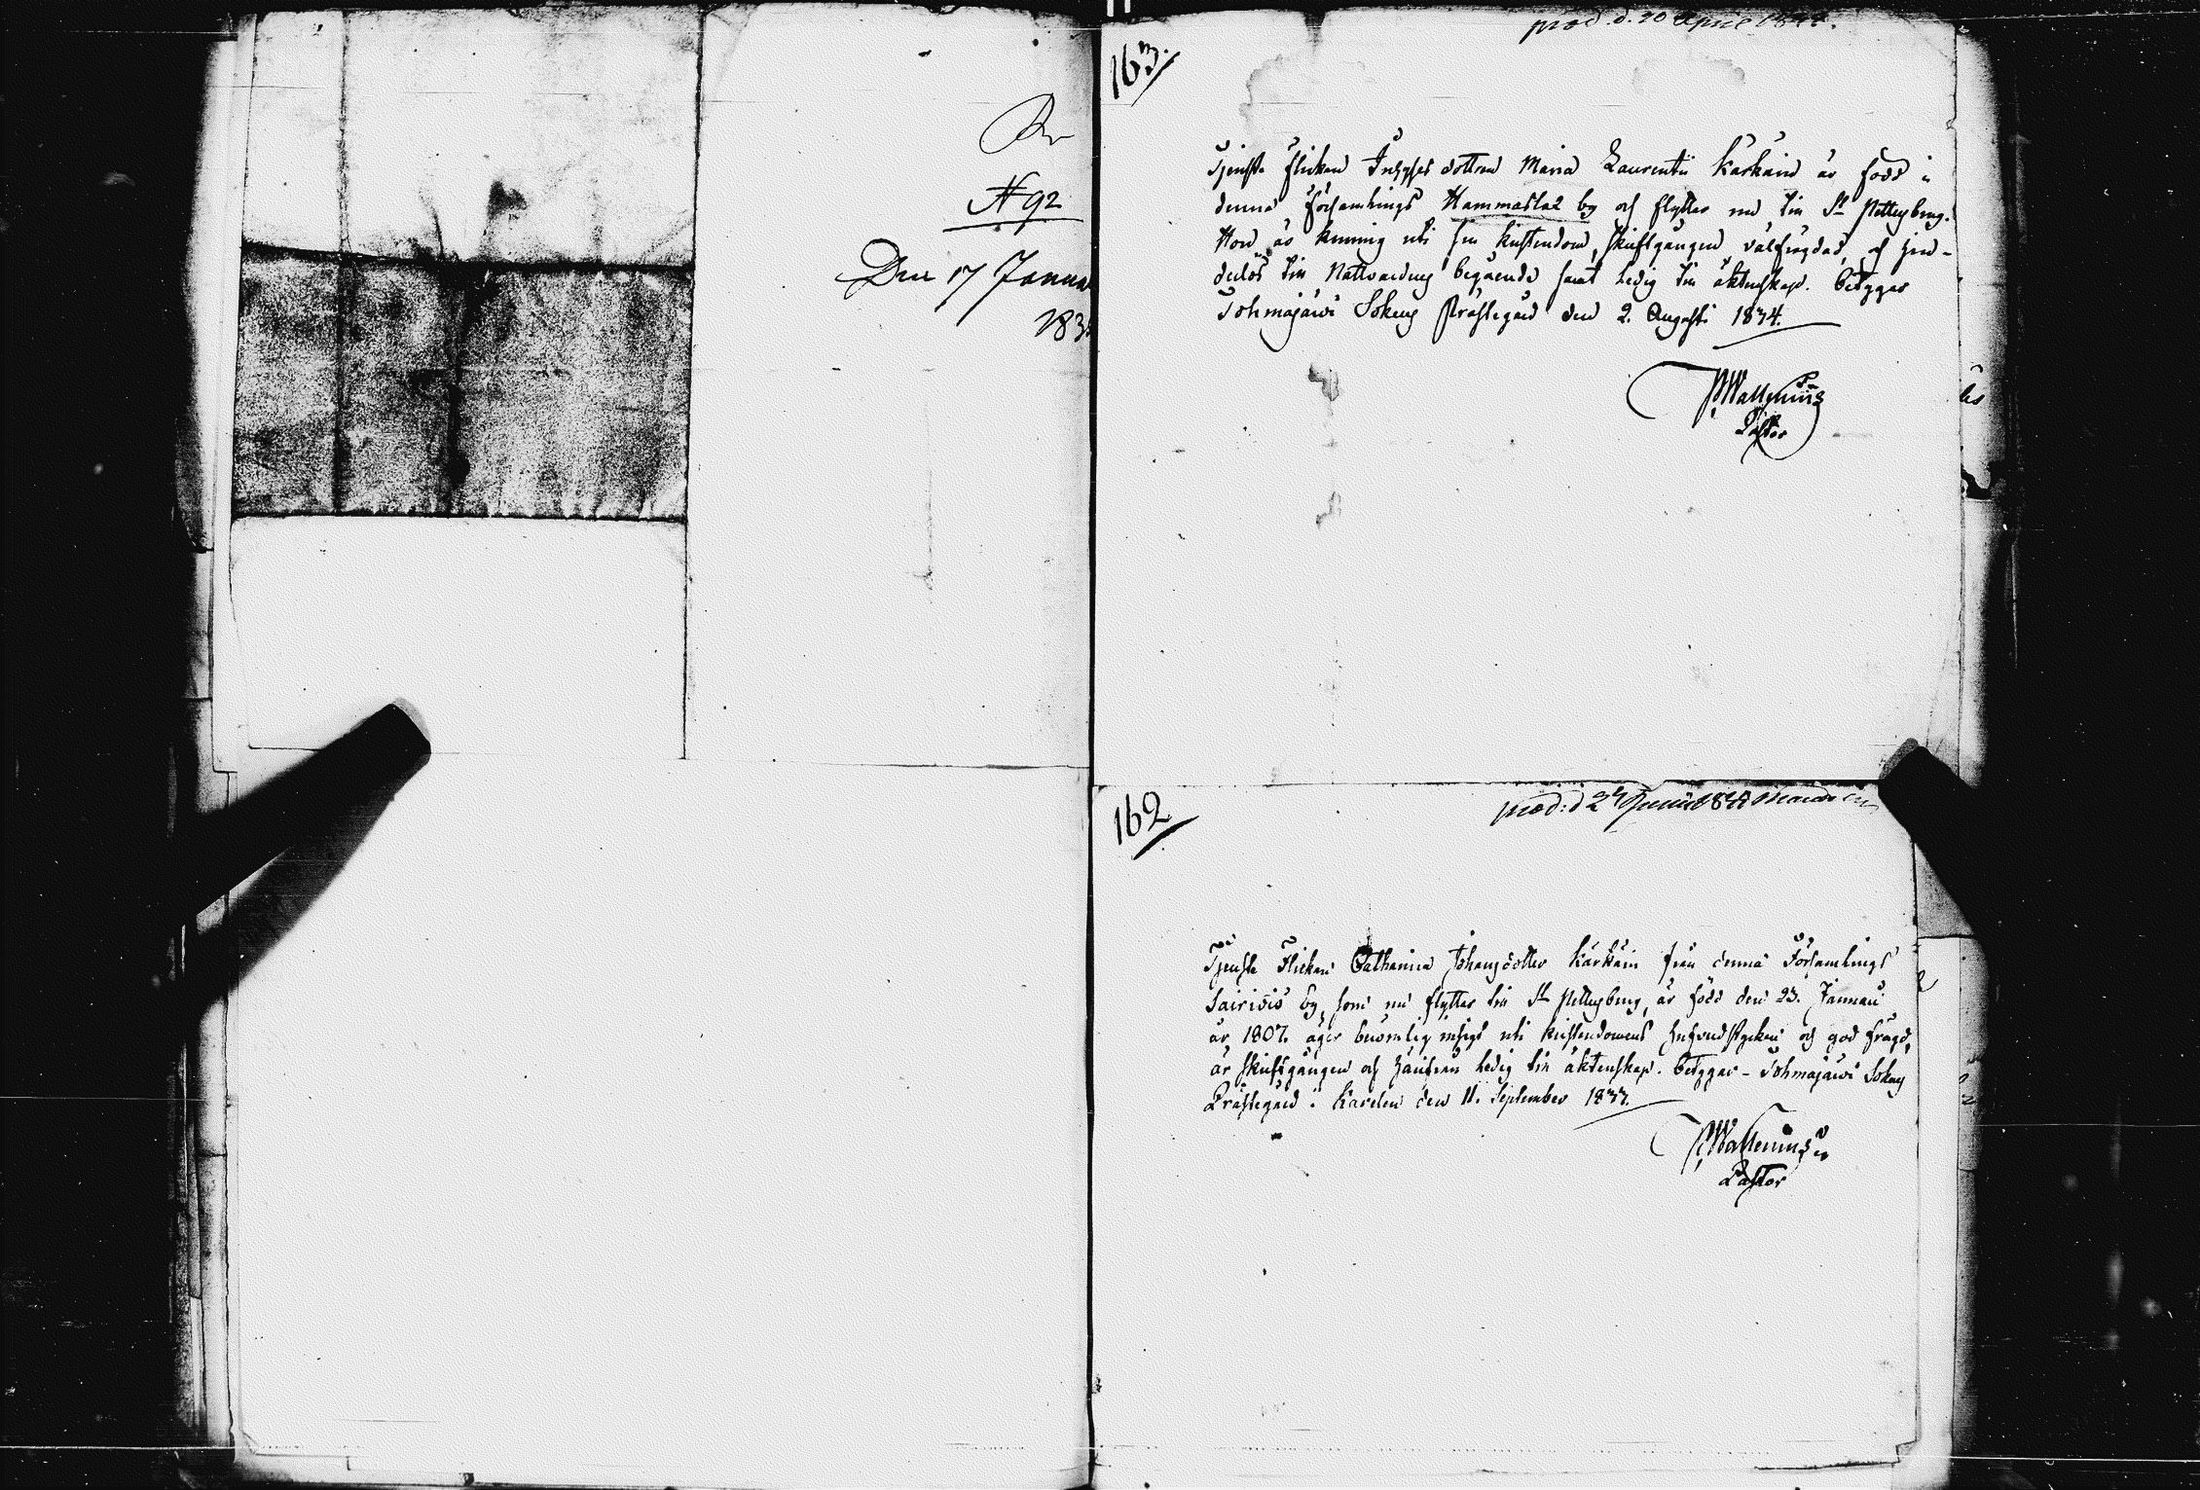 N 92
Den 17 Janua
183
163.
prod. d. 20 April
Tjenste Flickan Inhyses dottren Maria Laurentii Karkäin är född i
denna Församlings Hammaslax by och flyttar nu till St Pettersburg.
Hon är kunnig uti sin kristendom, skriftgången, välfrägdad, och hin-
derlös till Nattvardens begående samt ledig till äktenskap. Betygar
Tohmajärvi Sokens Prästegård den 2. Augusti 1834.
Wallenius
Pastor
162
prod: d 24 Junii
Tjenste Flickan Catharina Johansdotter Kärkäin från denna Församlings
by, som nu flyttar till St Pettersburg, är född den 23. Januari
år 1807. äger insigt uti kristendomens hufvudstycken och god frägd,
är skriftgången och härifrån ledig till äktenskap. Betygar Tohmajärvi Sokens
Prästegård i Karelen den 11. September 1833.
Wallenius
Pastor